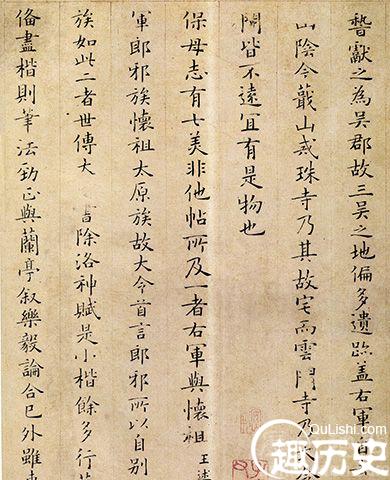 誓獻之為吳郡故三吳之地偏多遺跡蓋右軍自
山陰今蕺山戒珠寺乃其故宅而雲門寺乃
間皆不遠宜有是物也
保母志有七美非他帖所及一者右軍與懷祖王述
軍郎邪族懷祖太原族故大令首言郎邪所以自別
族如此二者世傳大 除洛神賦是小楷餘多行
俻盡楷則筆法勁正與蘭亭叙樂毅論合已外雖
QuLiShi.com
趣历史